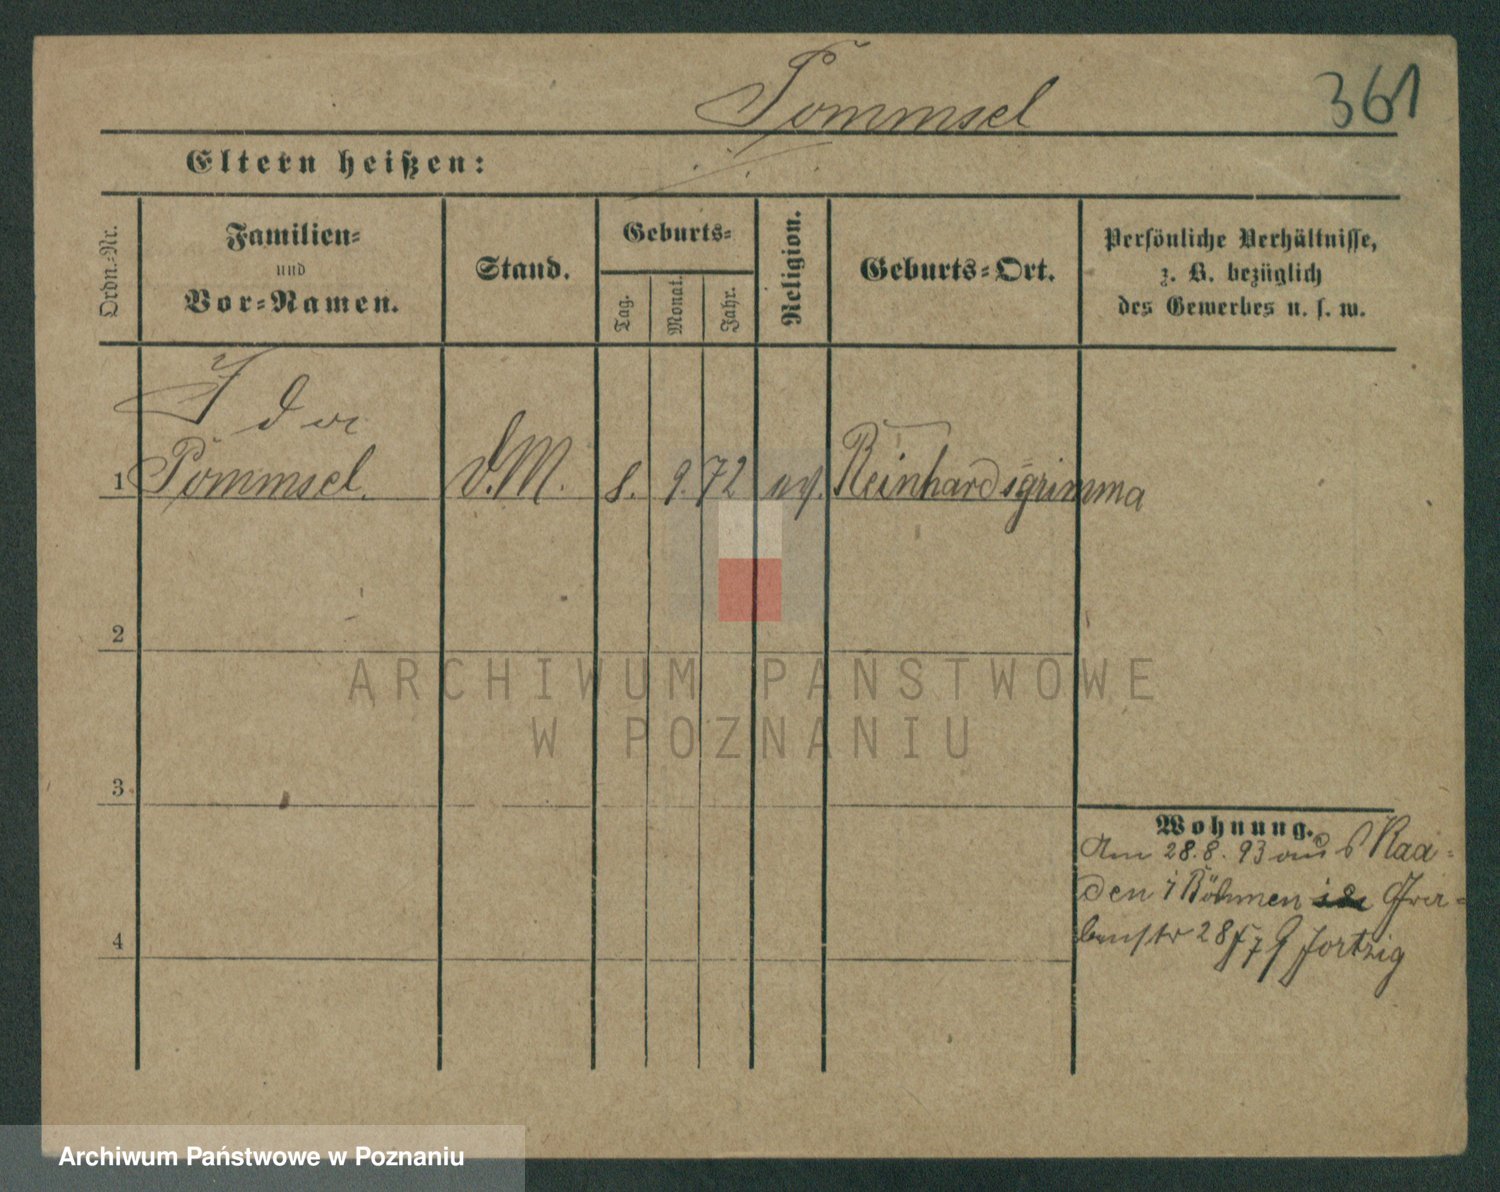 Pommsel
361
Eltern heißen:
Ordn.-Nr.
Familien-
und
Vor-Namen.
Stand.
Geburts-
Tag.
Monat.
Jahr.
Religion.
Geburts-Ort.
Persönliche Verhältnisse,
z. B. bezüglich
des Gewerbes u. s. w.
Ida
1 Pommsel. d.M. 8. 9. 72 ev. Reinhardsgrimma
2
ARCHIWUM PAŃSTWOWE
W POZNANIU
3
Wohnung.
Am 28.8.93 aus Kaa-
den i Böhmen
28
4
Archiwum Państwowe w Poznaniu